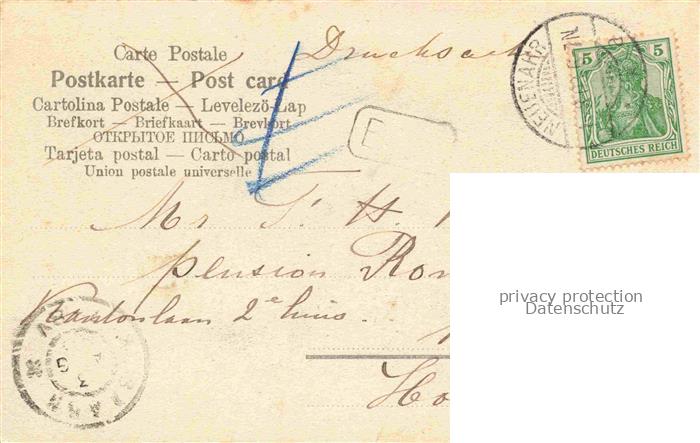 Carte Postale
Drucksache
Postkarte — Post card
Cartolina Postale — Levelező-Lap
Brefkort — Briefkaart — Brevkort
ОТКРЫТОЕ ПИСЬМО
Tarjeta postal — Carto postal
Union postale universelle
NEUENAHR
5 5
DEUTSCHES REICH
F
Mr T. H.
pension Rom
Kantonlaan 2e huis.
Ho
privacy protection
Datenschutz